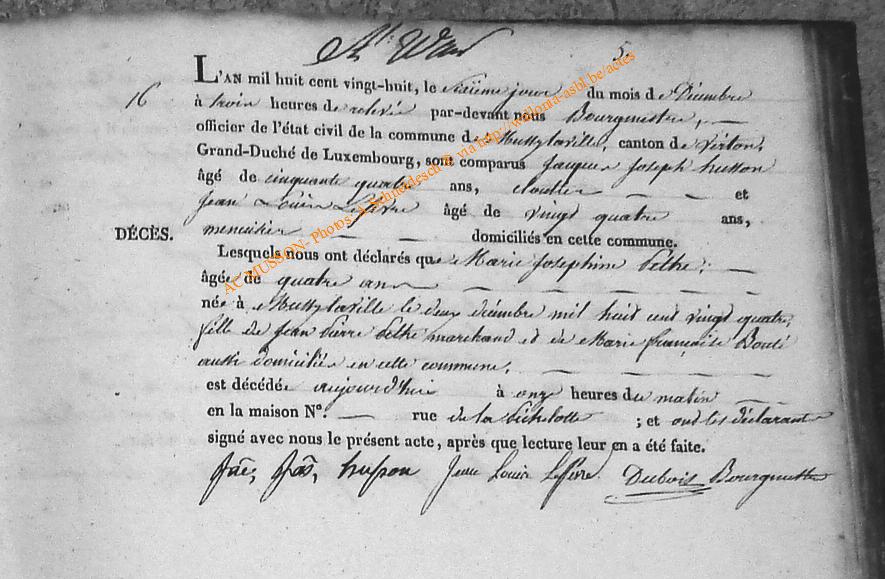 5.
16
L'AN mil huit cent vingt-huit, le sixième jour du mois de Décembre
à trois heures de relevée par-devant nous Bourgmestre,
officier de l'état civil de la commune de Mussylaville, canton de Virton,
Grand-Duché de Luxembourg, sont comparus Jacques Joseph husson
âgé de cinquante quatre ans, cloutier et
Jean Louis Lefèvre âgé de vingt quatre ans,
DÉCÈS.
menuisier domiciliés en cette commune.
Lesquels nous ont déclarés que Marie Josephine
âgée de quatre ans
née à Mussylaville le deux décembre mil huit cent vingt quatre,
fille de Jean Pierre marchand et de Marie françoise
aussi domiciliés en cette commune,
est décédée aujourd'hui à onze heures du matin
en la maison N°. rue de la ; et ont les déclarants
signé avec nous le présent acte, après que lecture leur en a été faite.
husson Jean Louis Lefèvre Dubois Bourgmestre
AC MUSSON- Photos A Schneidesch © via http://wallonia-asbl.be/actes